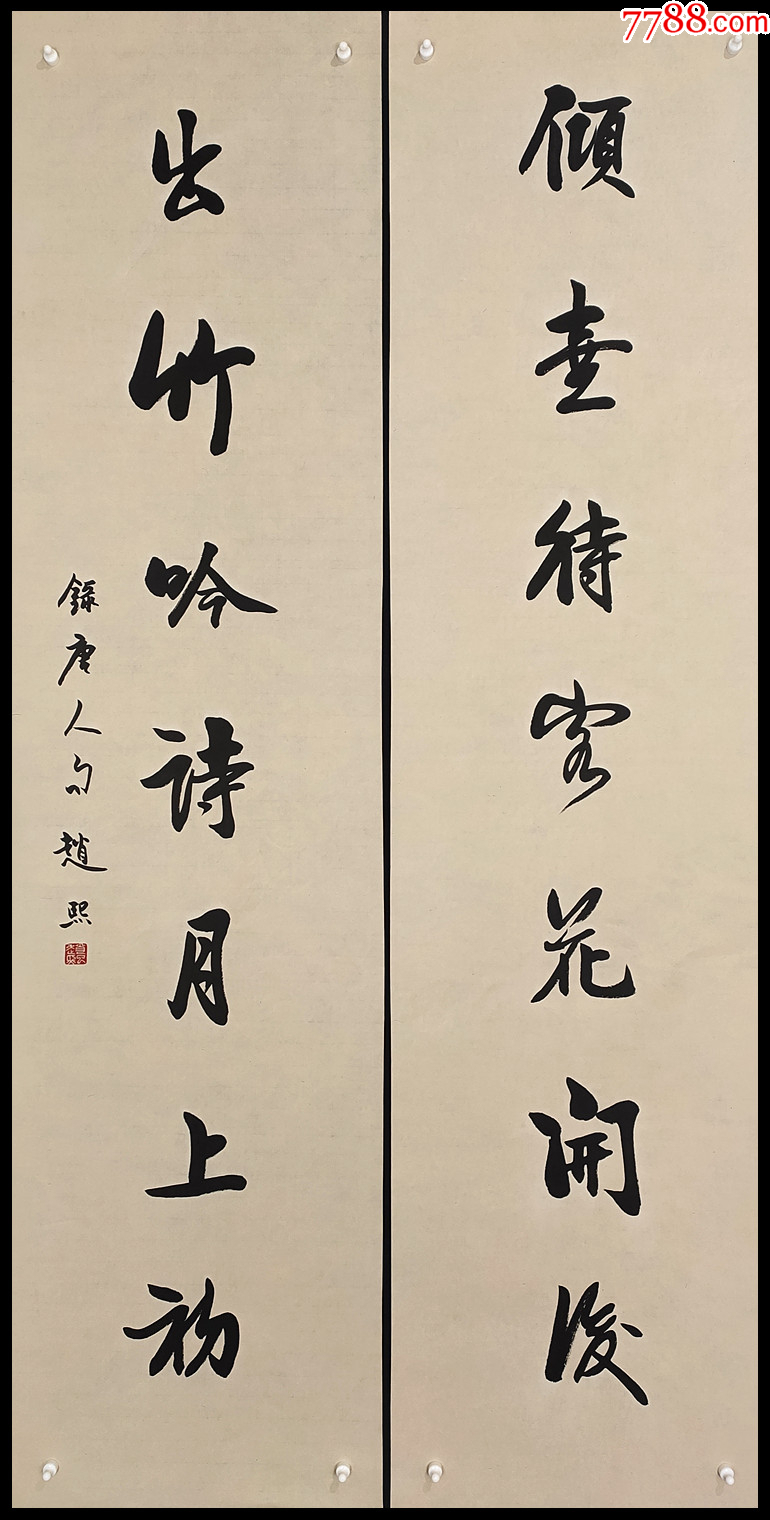 7788.com
倾壶待客花開後
出竹吟詩月上初
錄唐人句 趙熙